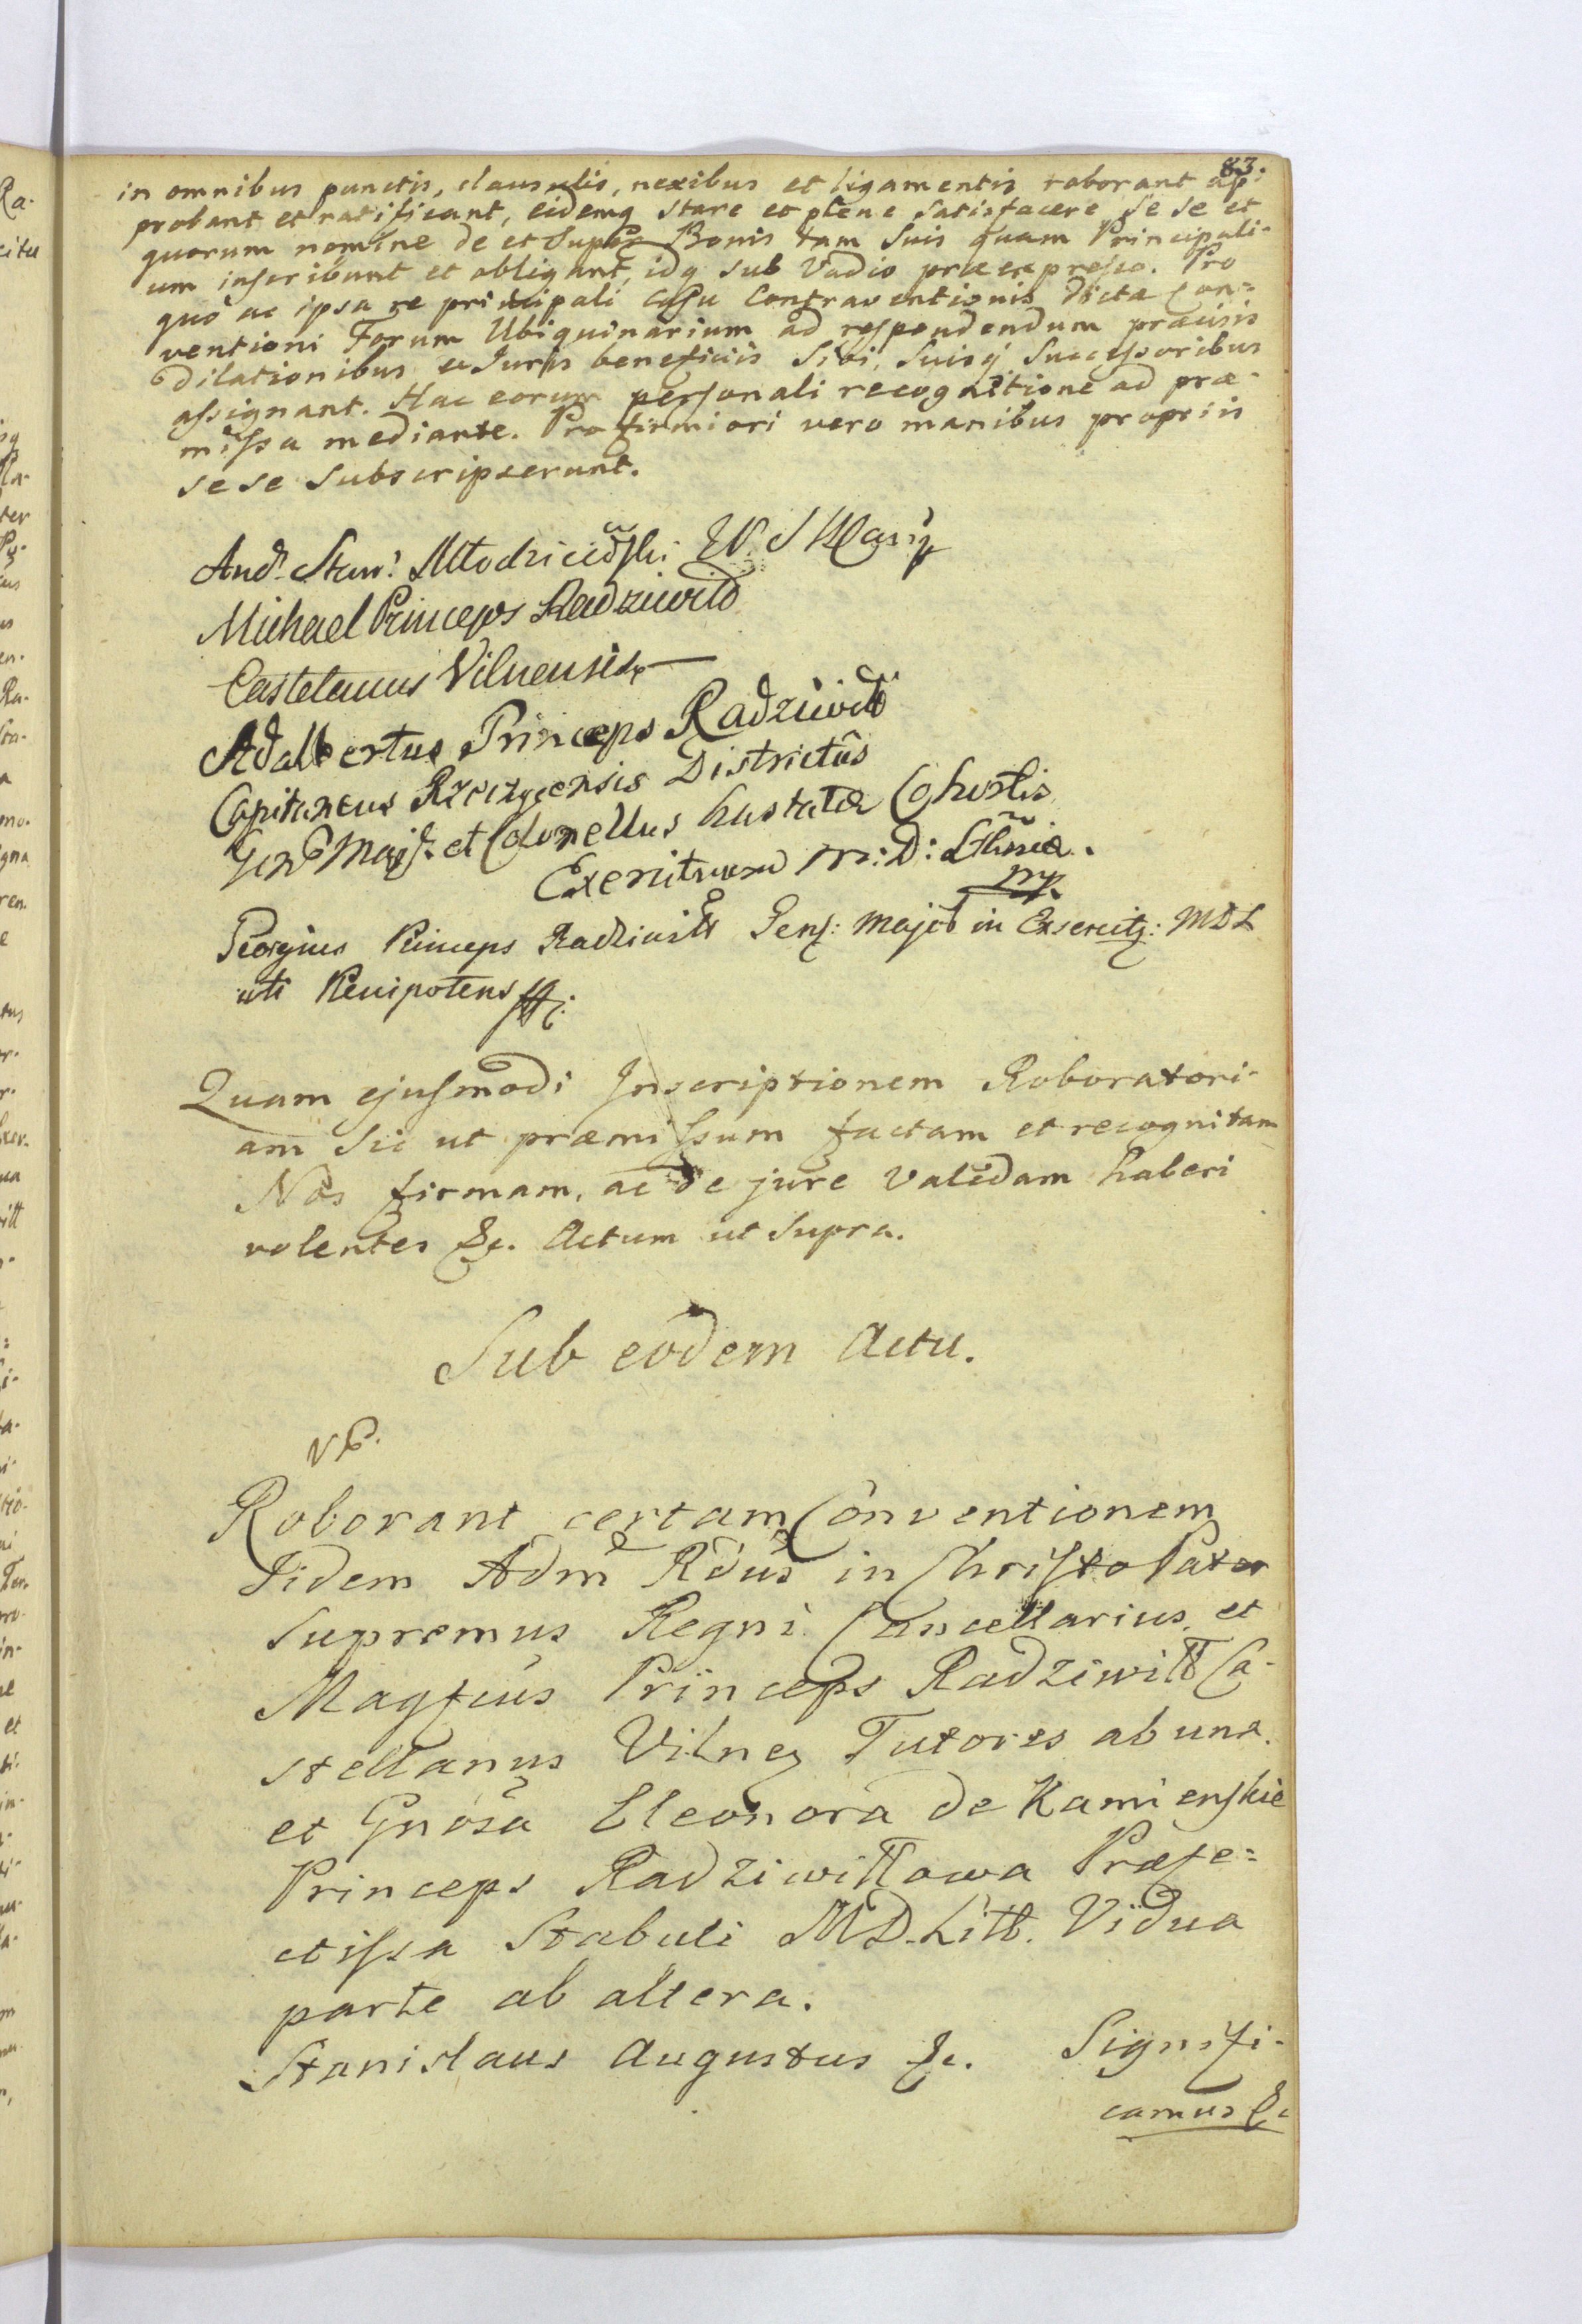 83.
in omnibus punctis, clausulis, nexibus et ligamentis roborant ap-
probant et ratificant, eidemq stare et plene satisfacere se se et
quorum nomine de et super Bonis tam suis quam Principali-
um inscribunt et obligant, idq sub Vadio præexpresso. Pro
quo ac ipsa re principali casu Contraventionis dictæ Con-
ventioni Forum Ubiquinarium ad respondendum præcisis
dilationibus et Juris beneficiis sibi, suisq successoribus
assignant. Hac eorum personali recognitione ad præ-
missa mediante. Pro firmiori vero manibus propriis
se se subscripserunt.
And. Stan. Młodzieiowski
Michael Princeps Radziwiłł
Castelanus Vilnensis
Adalbertus Princeps Radziwiłł
Capitaneus Rzeczycensis Districtûs
Gen Maj. et Colonellus hastatæ Cohortis
Exercituum M: D: Lthniæ.
mp.
Georgius Princeps Radziwiłł Gen: Major in Exercitq: MDL
uti Plenipotens
Quam ejusmodi Inscriptionem Roboratori-
am sic ut præmissum factam et recognitam
Nos firmam, ac de jure validam haberi
volentes &c. Actum ut supra.
Sub eodem Actu.
Roborant certam Conventionem
Iidem Adm Rdus in Christo Pater
Supremus Regni Cancellarius et
Magfcus Princeps Radziwiłł Ca-
stellanus Vilnen Tutores ab una
et Gnosa Eleonora de Kamienskie
Princeps Radziwiłłowa Præfe-
ctissa Stabuli MD. Litt. Vidua
parte ab altera.
Stanislaus Augustus &c. Signifi-
camus &c